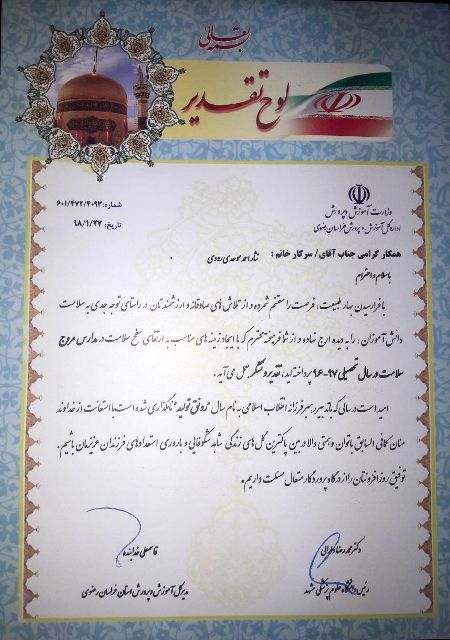 بسمه تعالی
لوح تقدیر
وزارت آموزش و پرورش
اداره کل آموزش و پرورش خراسان رضوی
شماره: ۶۰۱/۴۷۲/۴۰۹۲
تاریخ: ۹۸/۱/۲۷
همکار گرامی جناب آقای/ سرکار خانم : نثار احمد موحدی رودی
با سلام و احترام
با فرا رسیدن بهار طبیعت، فرصت را مغتنم شمرده و از تلاش های صادقانه و ارزشمندتان در راستای توجه جدی به سلامت
دانش آموزان، را به دیده ارج نهاده و از شما فرهیخته محترم که با ایجاد زمینه های مناسب به ارتقای سطح سلامت در مدارس مروج
سلامت در سال تحصیلی ۹۷-۹۶ پرداخته اید، تقدیر و تشکر بعمل می آید.
امید است در سالی که با تدبیر رهبر فرزانه انقلاب اسلامی به نام سال "رونق تولید" نامگذاری شده است با استعانت از خداوند
منان کمافی السابق با توان و همتی والا در بین پاکترین گل های زندگی شاهد شکوفایی و باروری استعدادهای فرزندان عزیزمان باشیم.
توفیق روز افزونتان را از درگاه پروردگار متعال مسئلت داریم.
دکتر محمدرضا دارابی
رئیس دانشگاه علوم پزشکی مشهد
قاسمعلی خدابنده
مدیرکل آموزش و پرورش استان خراسان رضوی